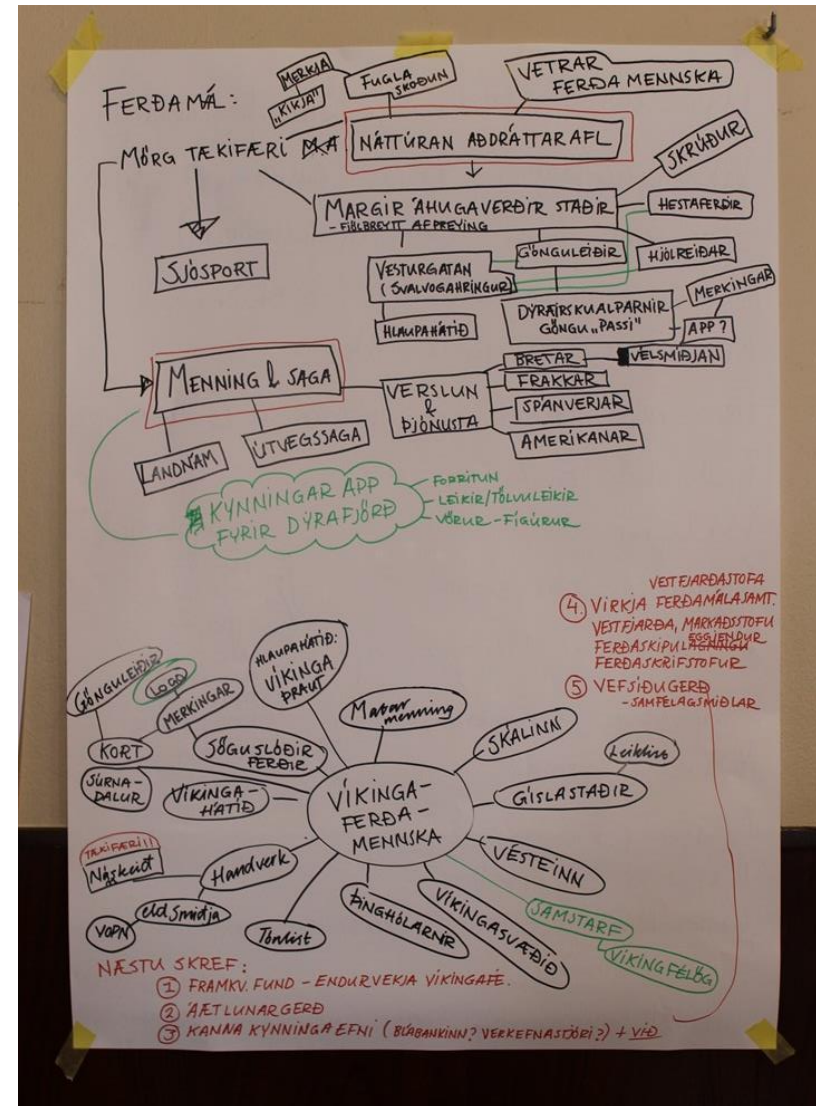 FERÐAMÁL:
MERKJA
„KÍKJA"
FUGLA
SKOÐUN
VETRAR
FERÐA MENNSKA
MÖRG TÆKIFÆRI
NÁTTÚRAN AÐDRÁTTARAFL
SKRÚÐUR
MARGIR ÁHUGAVERÐIR STAÐIR
- FJÖLBREYTT AFÞREYING
HESTAFERÐIR
SJÓSPORT
GÖNGULEIÐIR
HJÓLREIÐAR
VESTURGATAN
(SVALVOGAHRINGUR)
HLAUPAHÁTÍÐ
DÝRFIRSKU ALPARNIR
GÖNGU „PASSI"
MERKINGAR
APP?
MENNING & SAGA
VERSLUN
&
ÞJÓNUSTA
BRETAR
VÉLSMIÐJAN
FRAKKAR
SPÁNVERJAR
AMERÍKANAR
LANDNÁM
ÚTVEGSSAGA
KYNNINGAR APP
FYRIR DÝRAFJÖRÐ
- FORRITUN
- LEIKIR/TÖLVULEIKIR
- VÖRUR - FÍGÚRUR
VESTFJARÐASTOFA
④ VIRKJA FERÐAMÁLASAMT.
VESTFJARÐA, MARKAÐSSTOFU
FERÐASKIPULEGGJENDUR
FERÐASKRIFSTOFUR
⑤ VEFSÍÐUGERÐ
- SAMFÉLAGSMIÐLAR
GÖNGULEIÐIR
LOGO
MERKINGAR
KORT
SÖGUSLÓÐIR
FERÐIR
HLAUPAHÁTÍÐ:
VÍKINGA
ÞRAUT
Matar
menning
SKÁLINN
Leiklist
GÍSLASTAÐIR
SÚRNA-
DALUR
VÍKINGA-
HÁTÍÐ
VÍKINGA-
FERÐA-
MENNSKA
VÉSTEINN
TÆKIFÆRI!!
Námskeið
Handverk
eldsmiðja
VOPN
Tónlist
ÞINGHÓLARNIR
VÍKINGASVÆÐIÐ
SAMSTARF
VÍKINGFÉLÖG
NÆSTU SKREF:
① FRAMKV. FUND - ENDURVEKJA VÍKINGAFÉ.
② ÁÆTLUNARGERÐ
③ KANNA KYNNINGAEFNI (BLÁBANKINN? VERKEFNASTJÓRI?) + VIÐ